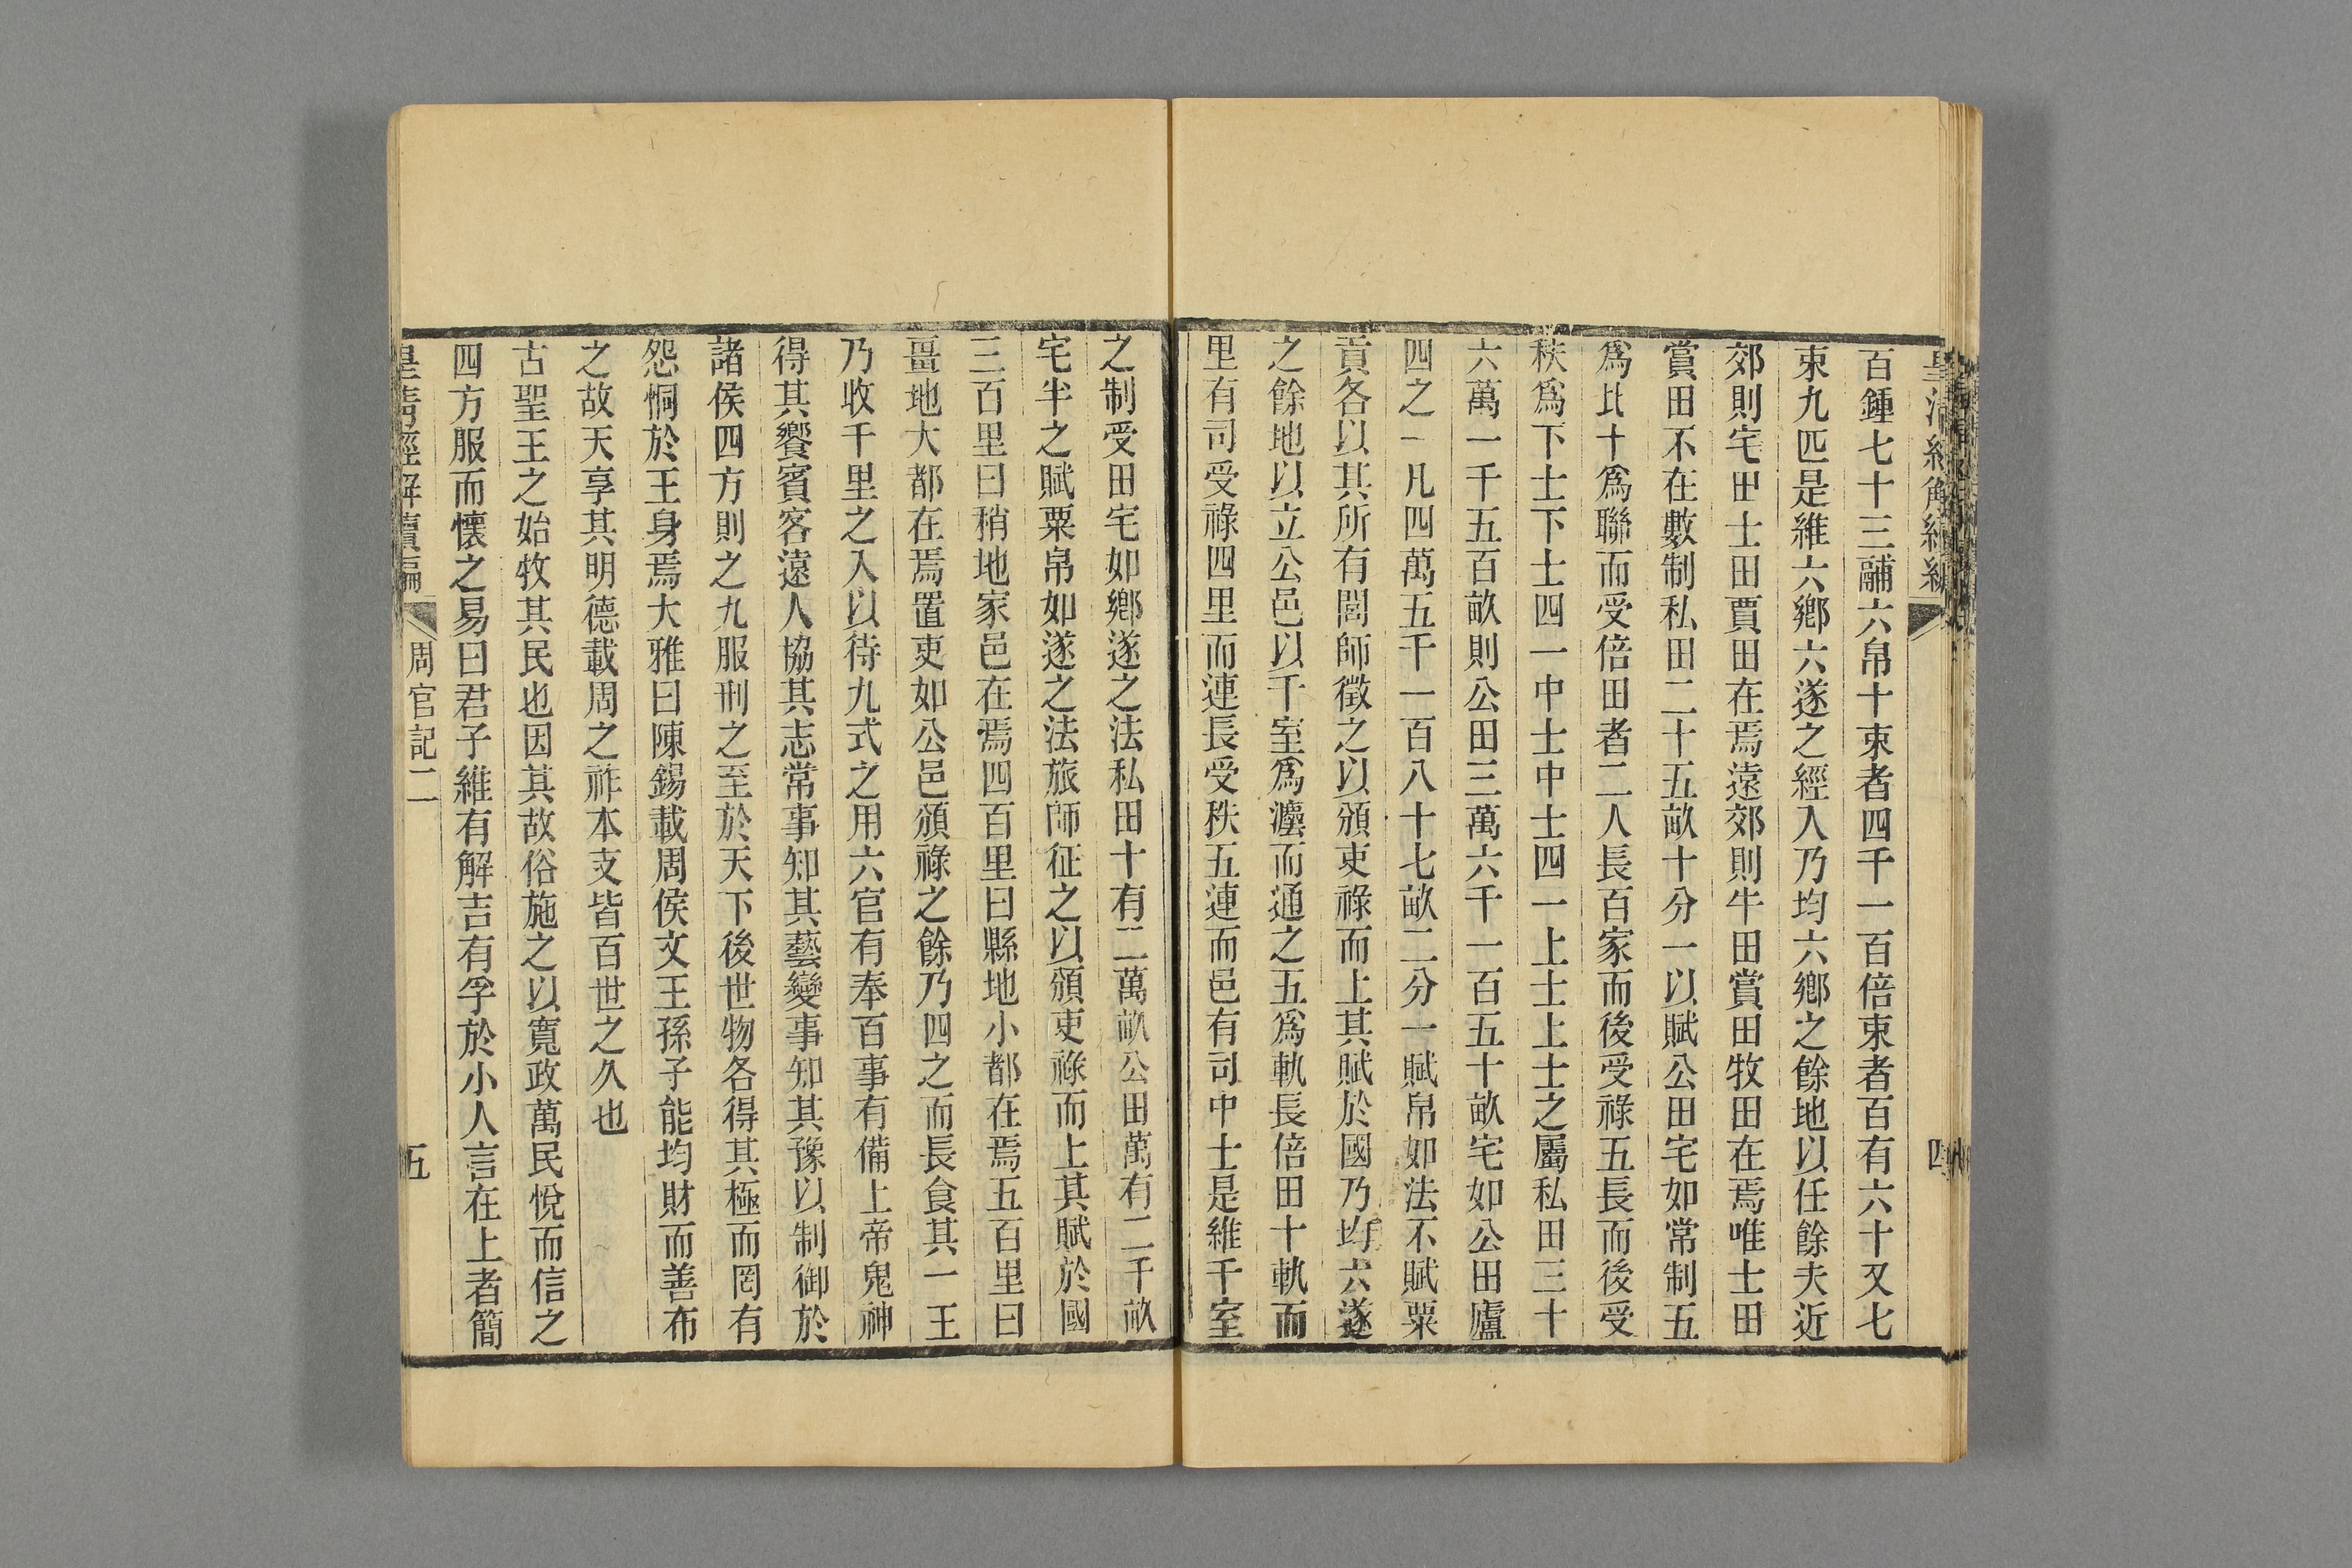 百鍾七十三鬴六帛十束者四千一百倍束者百有六十又七
束九匹是維六鄉六遂之經入乃均六鄉之餘地以任餘夫近
郊則宅田士田賈田在焉遠郊則牛田賞田牧田在焉唯士田
賞田不在數制私田二十五畝十分一以賦公田宅如常制五
爲比十爲聯而受倍田者二人長百家而後受祿五長而後受
秩爲下士下士四一中士中士四一上士上士之屬私田三十
六萬一千五百畝則公田三萬六千一百五十畝宅如公田廬
四之一凡四萬五千一百八十七畝二分一賦帛如法不賦粟
貢各以其所有閭師徵之以頒吏祿而上其賦於國乃均六遂
之餘地以立公邑以千室爲灋而通之五爲軌長倍田十軌而
里有司受祿四里而連長受秩五連而邑有司中士是維千室
之制受田宅如鄉遂之法私田十有二萬畝公田萬有二千畝
宅半之賦粟帛如遂之法旅師征之以頒吏祿而上其賦於國
三百里曰稍地家邑在焉四百里曰縣地小都在焉五百里曰
畺地大都在焉置吏如公邑頒祿之餘乃四之而長食其一王
乃收千里之入以待九式之用六官有奉百事有備上帝鬼神
得其饗賓客遠人協其志常事知其藝變事知其豫以制御於
諸侯四方則之九服刑之至於天下後世物各得其極而罔有
怨恫於王身焉大雅曰陳錫載周侯文王孫子能均財而善布
之故天享其明德載周之祚本支皆百世之久也
古聖王之始牧其民也因其故俗施之以寬政萬民悅而信之
四方服而懷之易曰君子維有解吉有孚於小人言在上者簡
皇清經解續編 周官記二 五